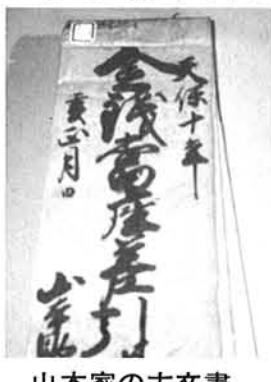 天保十年
金銭當座差引
亥正月日
山本
山本家の古文書